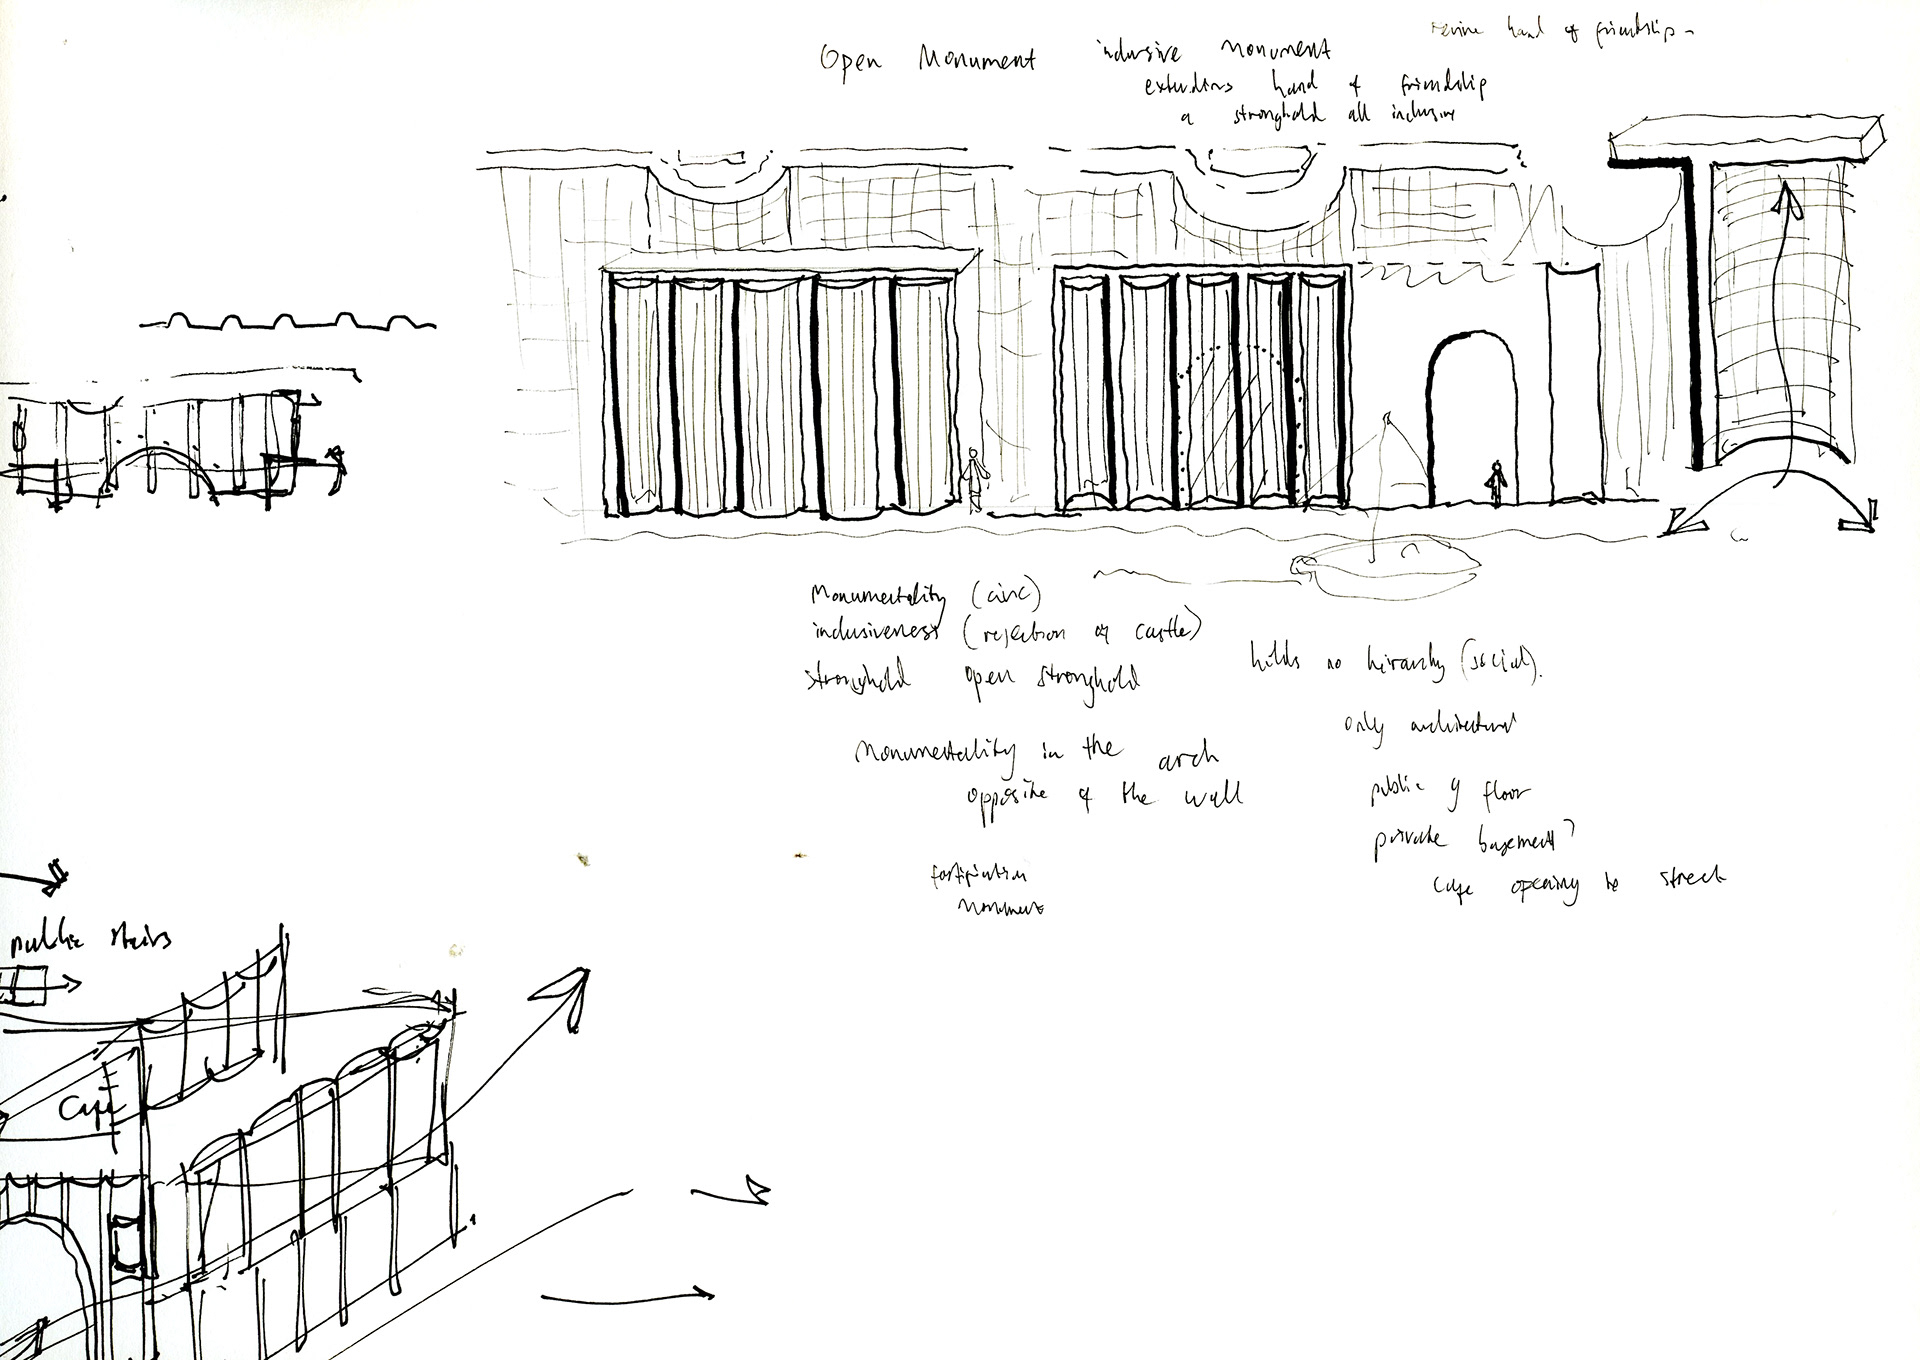 hand of friendship -
Open Monument inclusive Monument
extending hand of friendship
a stronghold all inclusive
Monumentality (civic)
inclusiveness (rejection of castle)
stronghold open stronghold
holds no hirarchy (social).
only architectural
Monumentality in the arch
opposite of the wall
public g floor
private basement?
cafe opening to street
fortification
Monument
public stairs
Cafe